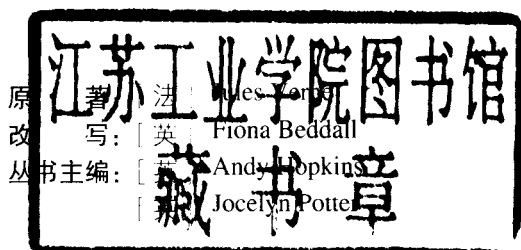 江苏工业学院图书馆
藏书章
原 著 法 Jules Verne
改 写: [英 Fiona Beddall
丛书主编: [英 Andy Hopkins
[英 Jocelyn Potter